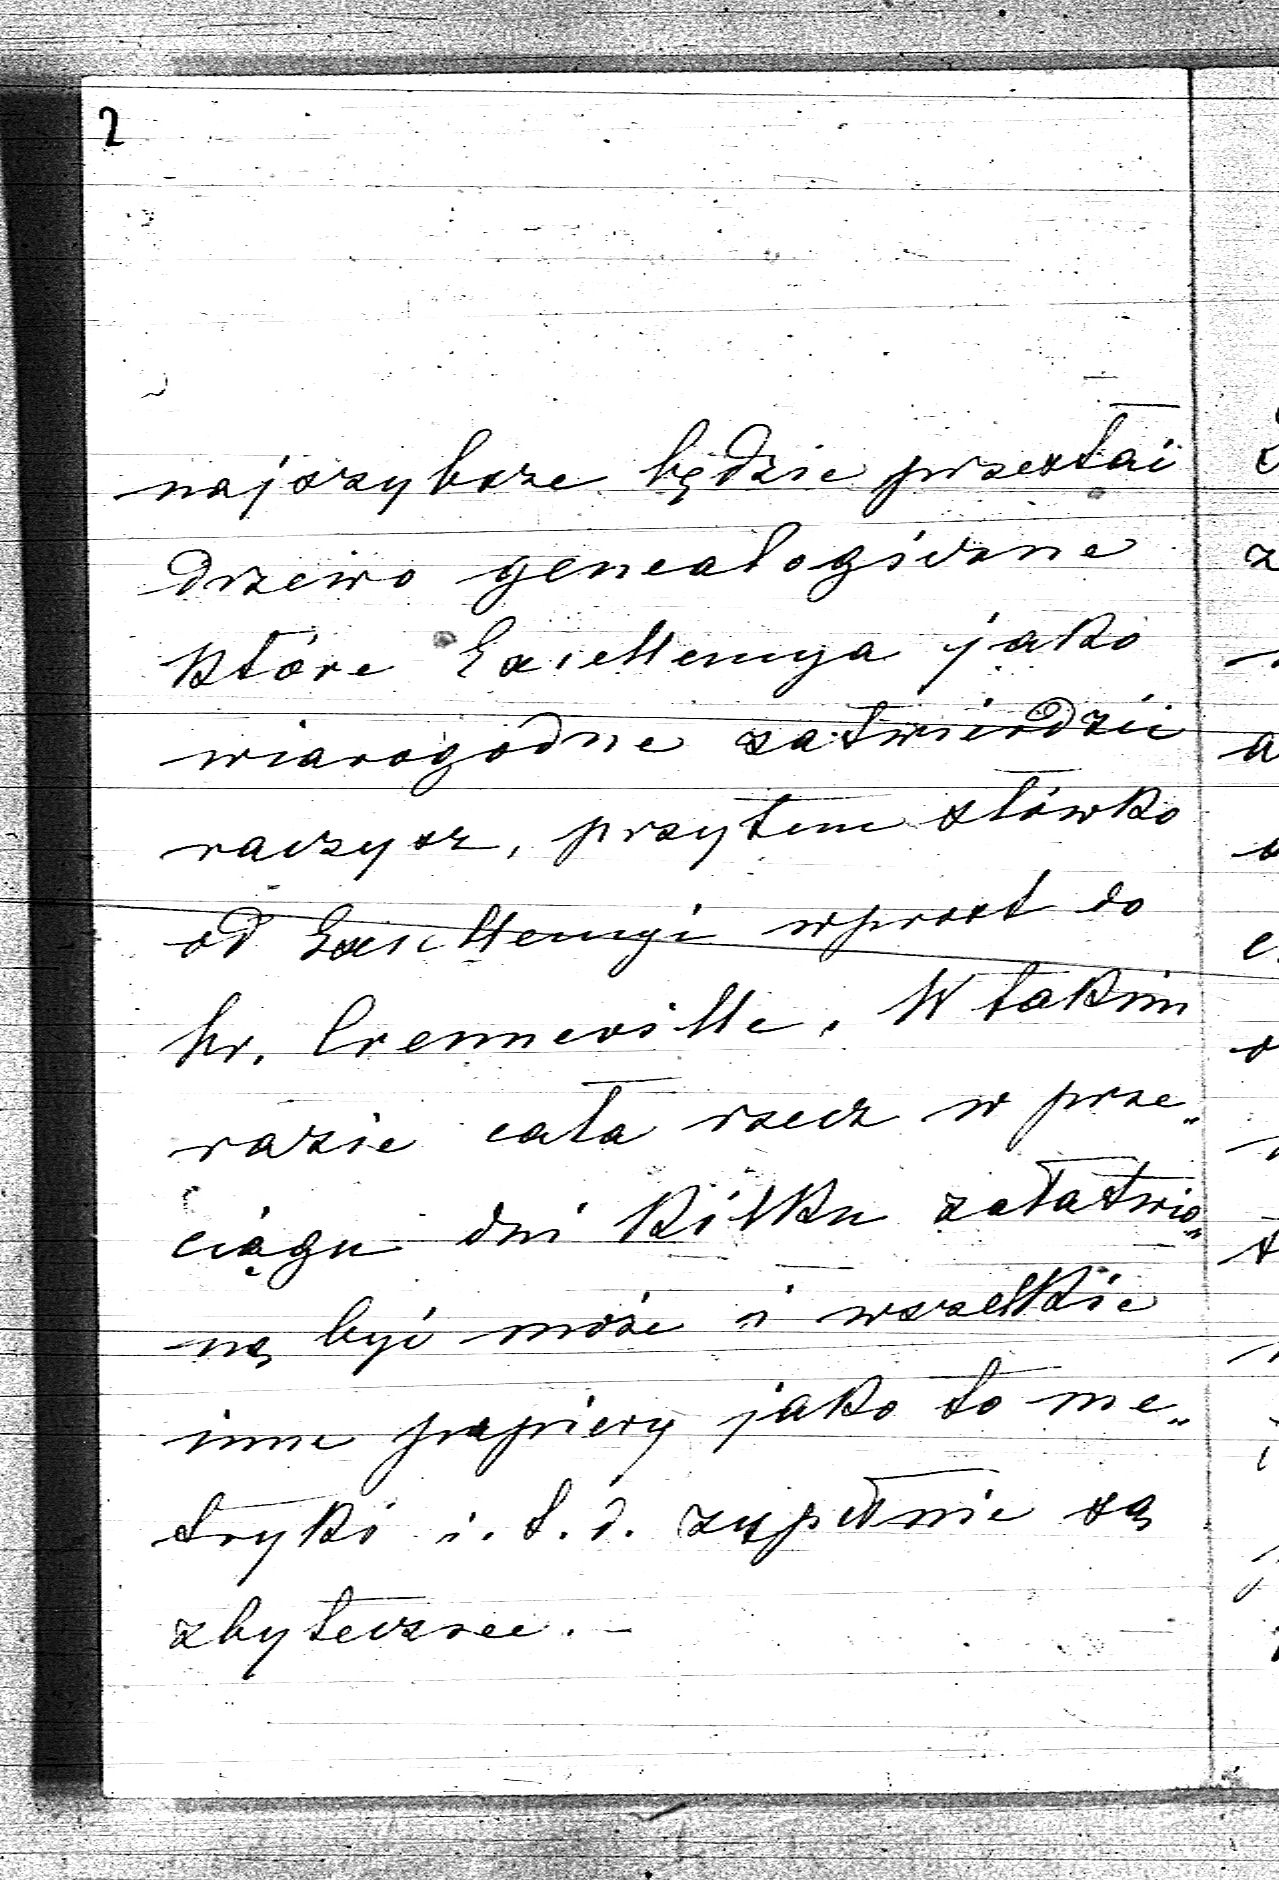 2
najszybsze będzie przesłać
drzewo genealogiczne
które Excellencya jako
wiarogodne zatwierdzić
raczysz, przytem słówko
od Excellencyi wprost do
hr. Crenneville. W takim
razie cała rzecz w prze„
ciągu dni kilku załatwio„
ną być może i wszelkie
inne papiery jako to me„
tryki i. t. d. zupełnie są
zbyteczne. –